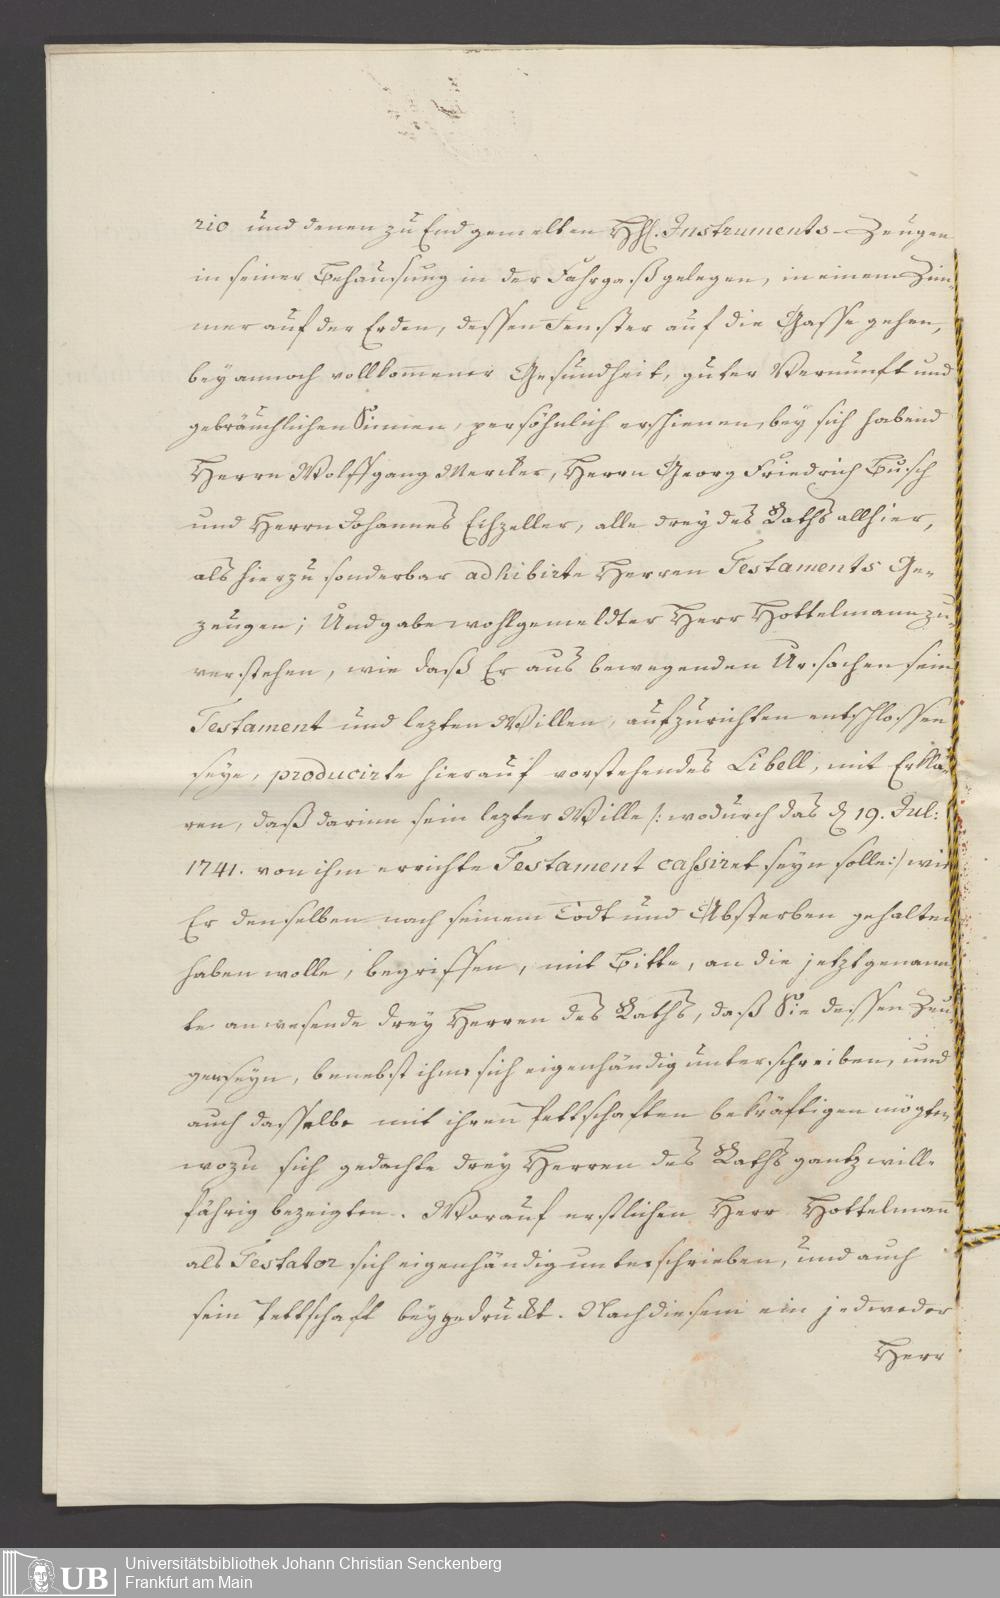 rio und denen zu End gemelten HH. Instruments-Zeugen
in seiner Behausung in der Fahrgaß gelegen, in einem Zim-
mer auf der Erden, dessen Fenster auf die Gasse gehen,
bey annoch vollkommener Gesundheit, guter Vernunft und
gebräuchlichen Sinnen, persöhnlich erschienen, bey sich habend
Herrn Wolffgang Mercker, Herrn Georg Friedrich Busch
und Herrn Johannes Echzeller, alle drey des Raths allhier,
als hierzu sonderbar adhibirte Herren Testaments Ge-
zeugen; Und gabe wohlgemeldter Herr Hottelmann zu
verstehen, wie daß Er aus bewegenden Ursachen sein
Testament und lezten Willen, aufzurichten entschlossen
seye, producirte hierauf vorstehendes Libell, mit Erklä-
ren, daß darinn sein lezter Wille /: wodurch das d 19. Jul:
1741. von ihm errichte Testament cassiret seyn solle :/ wie
Er denselben nach seinem Todt und Absterben gehalten
haben wolle, begriffen, mit Bitte, an die jetztgenann-
te anwesende drey Herren des Raths, daß Sie dessen Zeu-
gen seyn, benebst ihme sich eigenhändig unterschreiben, und
auch dasselbe mit ihren Pettschaften bekräftigen mögten,
wozu sich gedachte drey Herren des Raths gantz will-
fährig bezeigten. Worauf erstlichen Herr Hottelmann
als Testator sich eigenhändig unterschrieben, und auch
sein Pettschaft beygedruckt. Nach diesem ein jedweder
Herr
UB
Universitätsbibliothek Johann Christian Senckenberg
Frankfurt am Main